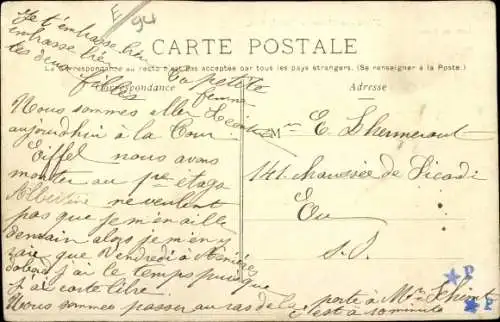 E
94
Je t'embrasse bien
embrasse bien
tes deux filles
CARTE POSTALE
La Correspondance au recto n'est pas acceptée par tous les pays étrangers. (Se renseigner à la Poste.)
Correspondance
Adresse
Ta petite
femme
Nous sommes aller
aujourdhui à la Tour
Eiffel nous avons
monter au 1er étage
Albertine ne veulent
pas que je m'en aille
demain alors je m'en
que Vendredi à Asnières
j'ai le temps puisque
j'ai carte libre.
Nous sommes passer au ras de la porte à Mr
c'est à
M E. Lhermeroult
141 chaussée de Picardie
Eu
S. I.
P
P